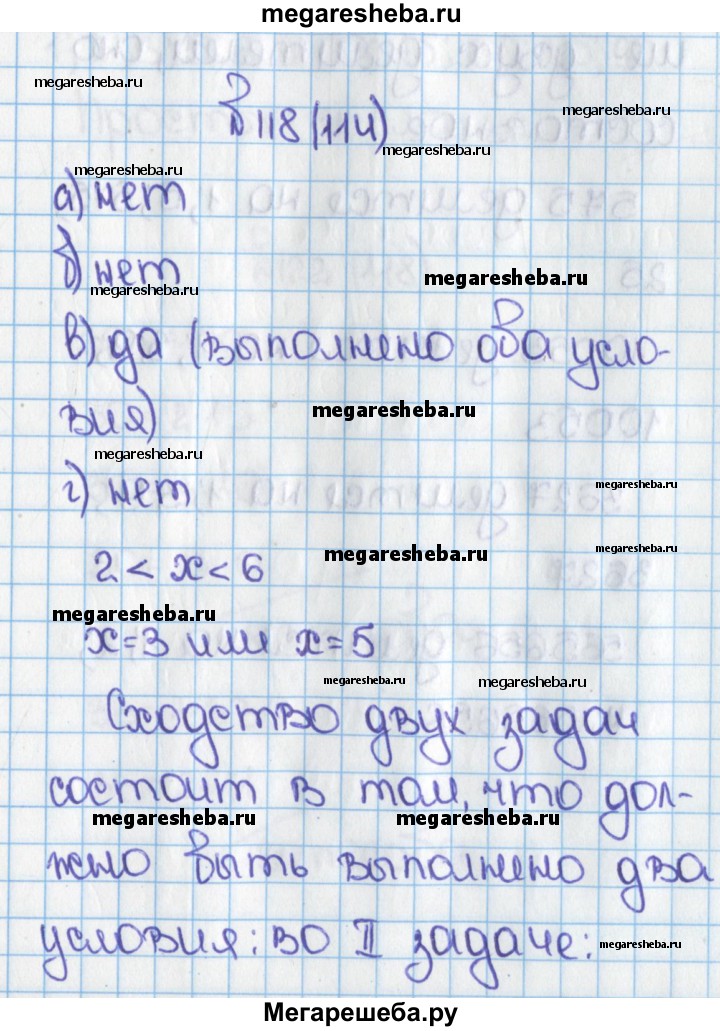 megaresheba.ru
megaresheba.ru
megaresheba.ru
№118 (114)
megaresheba.ru
megaresheba.ru
а) нет
б) нет
megaresheba.ru
megaresheba.ru
в) да (выполнено оба усло-
вия)
megaresheba.ru
megaresheba.ru
г) нет
megaresheba.ru
2 < x < 6
megaresheba.ru
megaresheba.ru
megaresheba.ru
x=3 или x=5
megaresheba.ru
megaresheba.ru
Сходство двух задач
состоит в том, что дол-
megaresheba.ru
megaresheba.ru
жно быть выполнено два
условия: во II задаче:
megaresheba.ru
Мегарешеба.ру